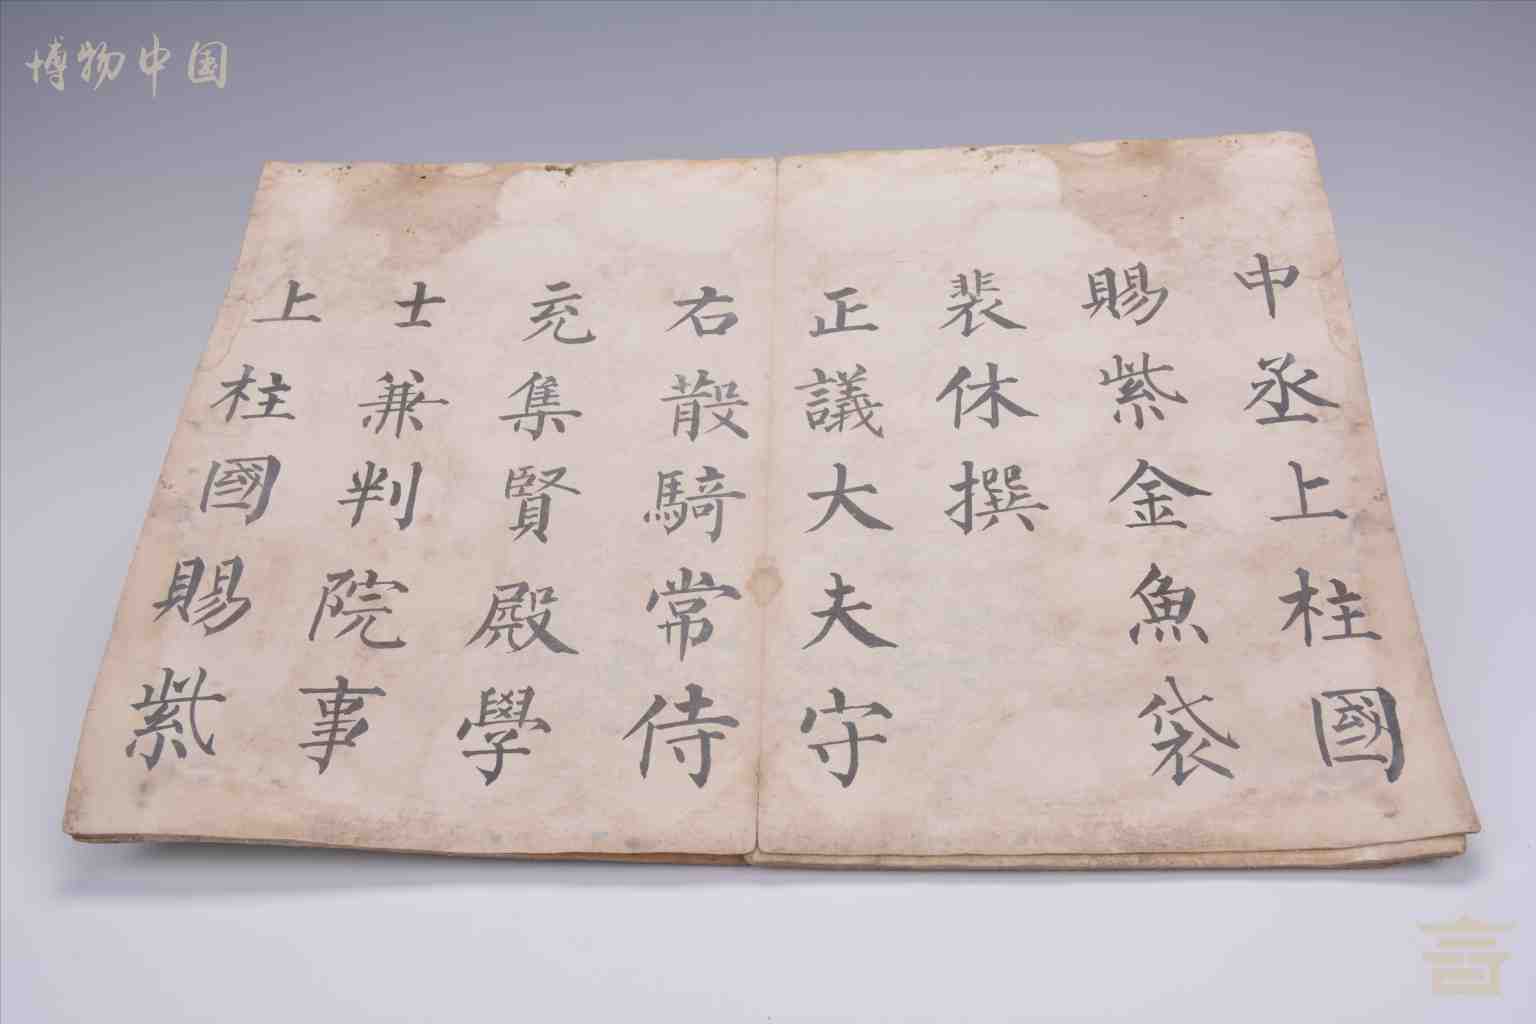 博物中国
中丞上柱國
賜紫金魚袋
裴休撰
正議大夫守
右散騎常侍
充集賢殿學
士兼判院事
上柱國賜紫